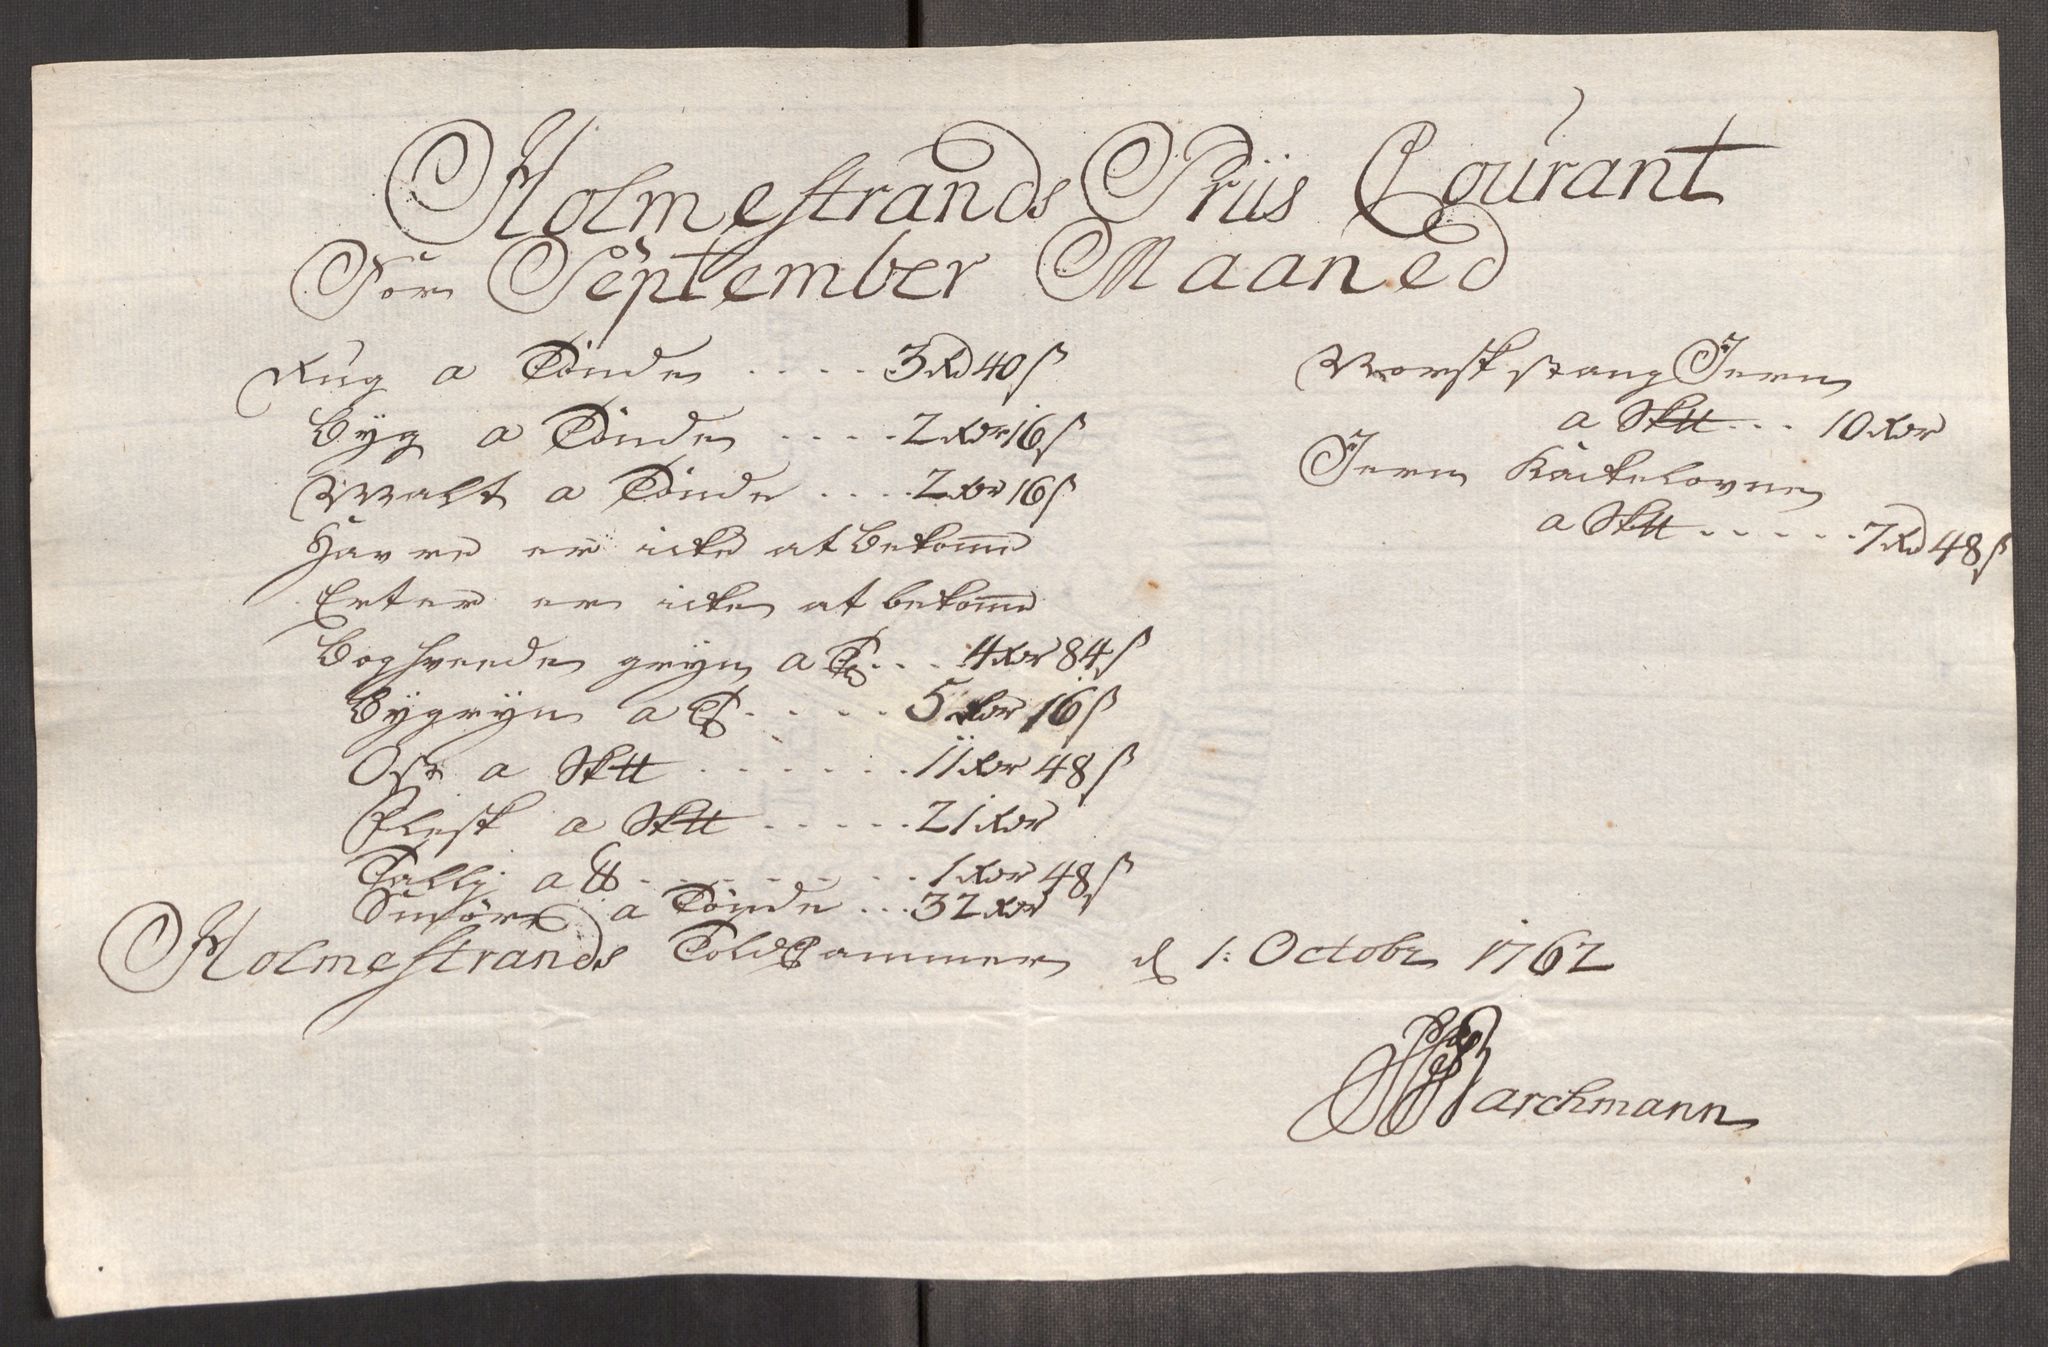 Holmestrands Priis Courant
For September Maaned
Rug a Tönde . . . . 3 Rd 40 ß
Byg a Tönde . . . . . 2 Rdr 16 ß
Malt a Tönde . . . . 2 Rdr 16 ß
Havre er icke at bekome
Erter er icke at bekome
Boghvede gryn a Tr . . . 4 Rdr 84 ß
Bygryn a T . . . . . 5 Rdr 16 ß
Ost a Sk℔ . . . . . . . 11 Rdr 48 ß
Flesk a Sk℔ . . . . . 21 Rdr
Tallig a L℔ . . . . . . . . 1 Rdr 48 ß
Smör a Tönde . . . 32 Rdr
Norsk stang Jern
a Sk℔ . . . 10 Rdr
Jern Kackelovne
a Sk℔ . . . . . . 7 Rd 48 ß
Holmestrands Toldkammer d 1: Octobr 1762
Barchmann